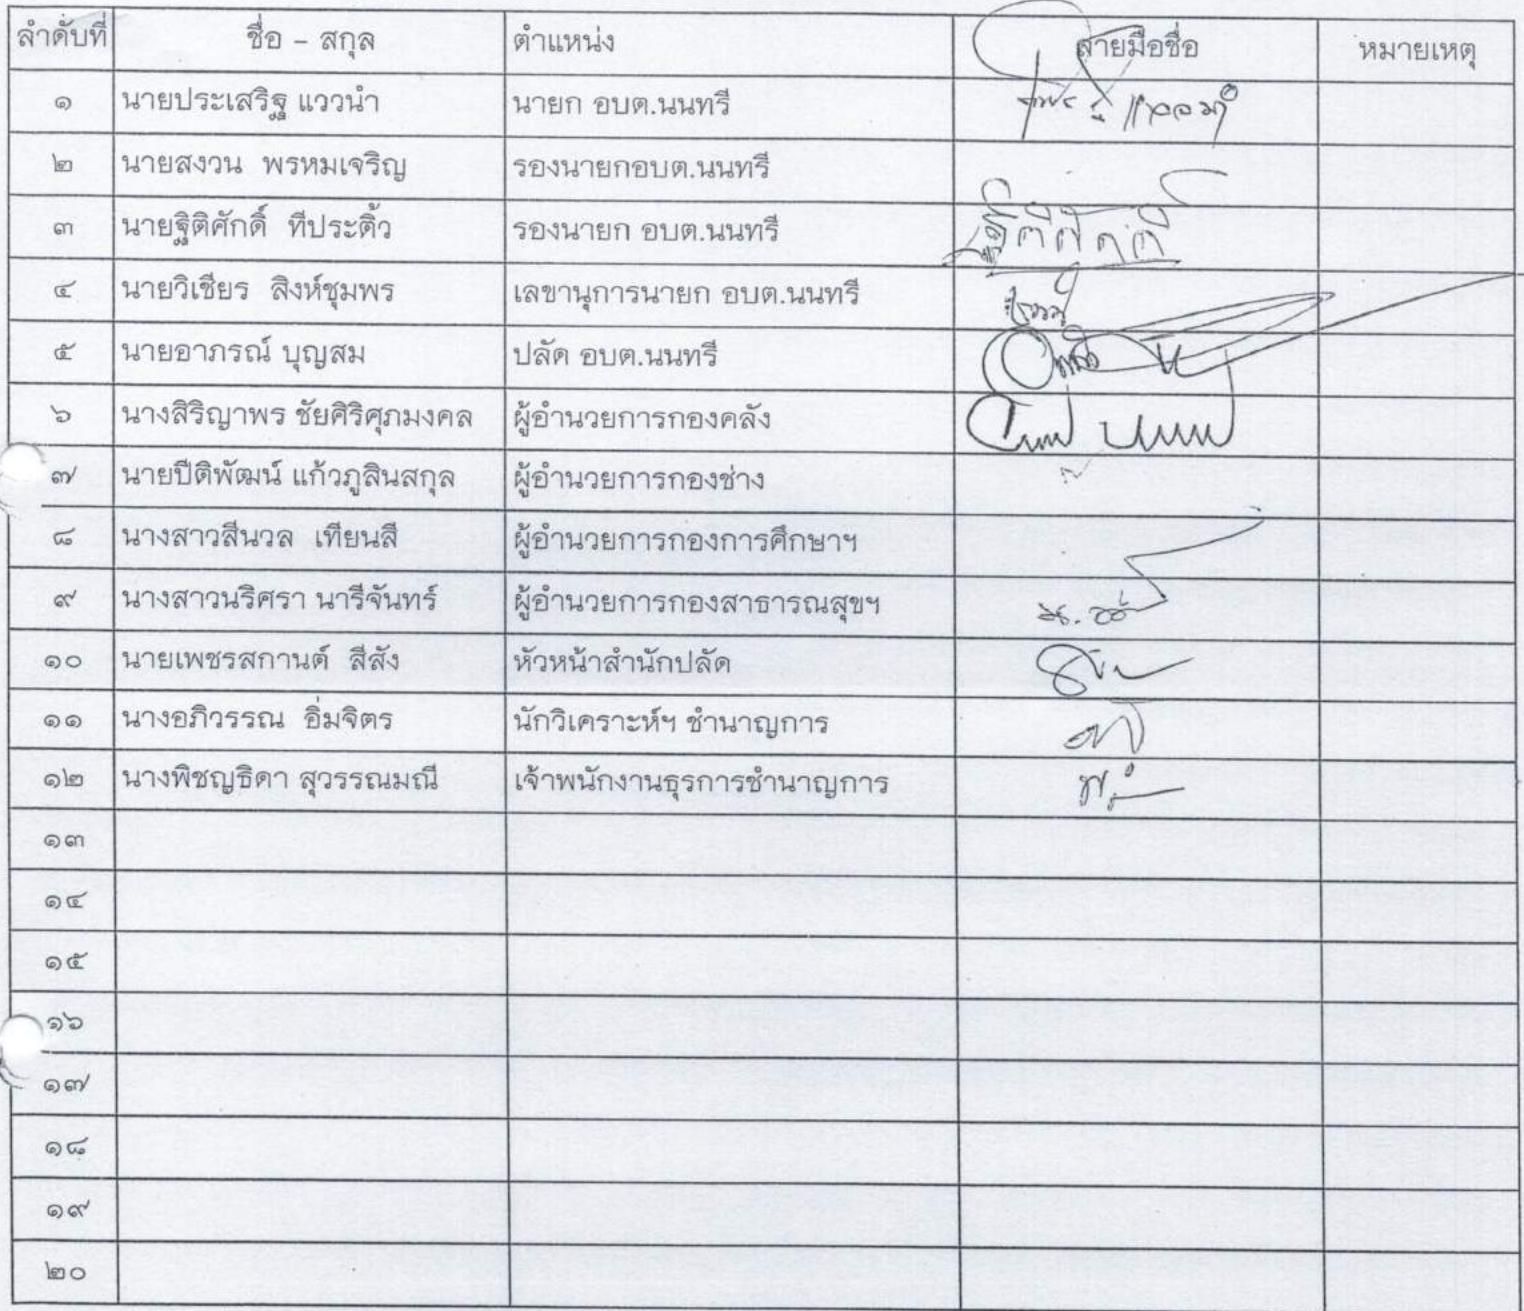 ลำดับที่ ชื่อ - สกุล ตำแหน่ง ลายมือชื่อ หมายเหตุ
๑ นายประเสริฐ แววนำ นายก อบต.นนทรี
๒ นายสงวน พรหมเจริญ รองนายกอบต.นนทรี
๓ นายฐิติศักดิ์ ทีประดิ้ว รองนายก อบต.นนทรี ฐิติศักดิ์
๔ นายวิเชียร สิงห์ชุมพร เลขานุการนายก อบต.นนทรี
๕ นายอาภรณ์ บุญสม ปลัด อบต.นนทรี
๖ นางสิริญาพร ชัยศิริศุภมงคล ผู้อำนวยการกองคลัง
๗ นายปิติพัฒน์ แก้วภูสินสกุล ผู้อำนวยการกองช่าง
๘ นางสาวสีนวล เทียนสี ผู้อำนวยการกองการศึกษาฯ
๙ นางสาวนริศรา นารีจันทร์ ผู้อำนวยการกองสาธารณสุขฯ
๑๐ นายเพชรสกานต์ สีสัง หัวหน้าสำนักปลัด
๑๑ นางอภิวรรณ อิ่มจิตร นักวิเคราะห์ฯ ชำนาญการ
๑๒ นางพิชญธิดา สุวรรณมณี เจ้าพนักงานธุรการชำนาญการ
๑๓
๑๔
๑๕
๑๖
๑๗
๑๘
๑๙
๒๐